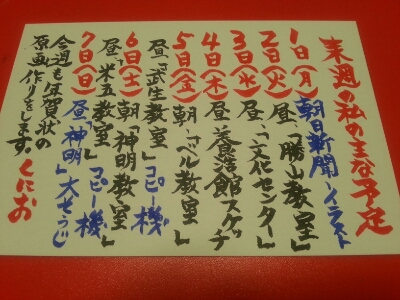 来週の私の主な予定
1日(月)朝日新聞・イラスト
昼・「勝山教室」
2日(火)昼・「文化センター」
3日(水)
4日(木)昼・養浩館スケッチ
5日(金)朝・「ベル教室」
昼・「武生教室」コピー機
6日(土)朝「神明教室」
昼「米五教室」コピー機
7日(日)昼「神明」大そうじ
今週も年賀状の
原画作りをします。くにお